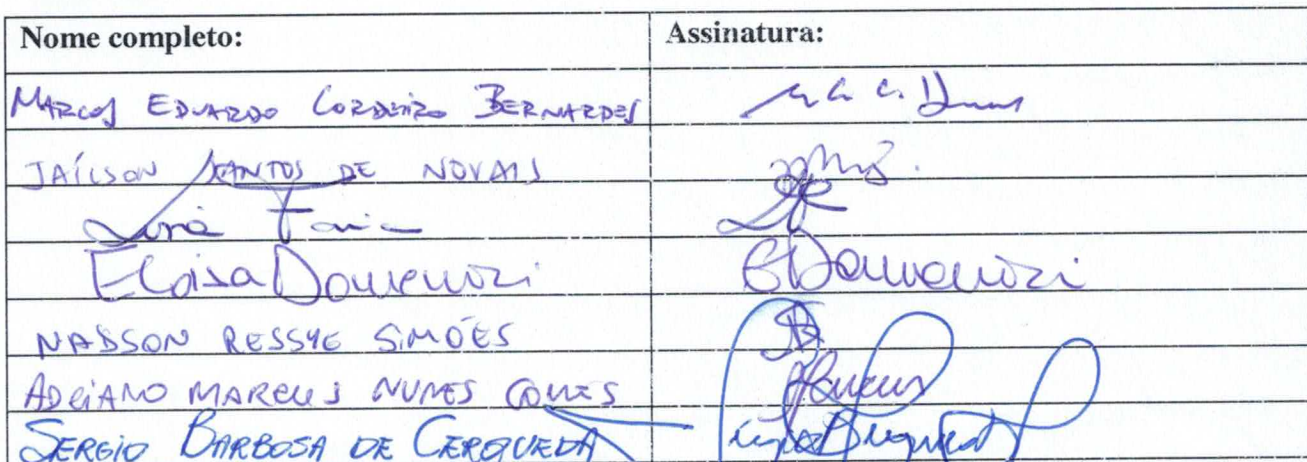 Nome completo: Assinatura:
MARCOS EDUARDO CORDEIRO BERNARDES
JAÍLSON SANTOS DE NOVAIS
Faria
Eloisa Domenici EDomenici
NADSON RESSYÉ SIMÕES
ADRIANO MARCUS NUNES GOMES
SERGIO BARBOSA DE CERQUEDA